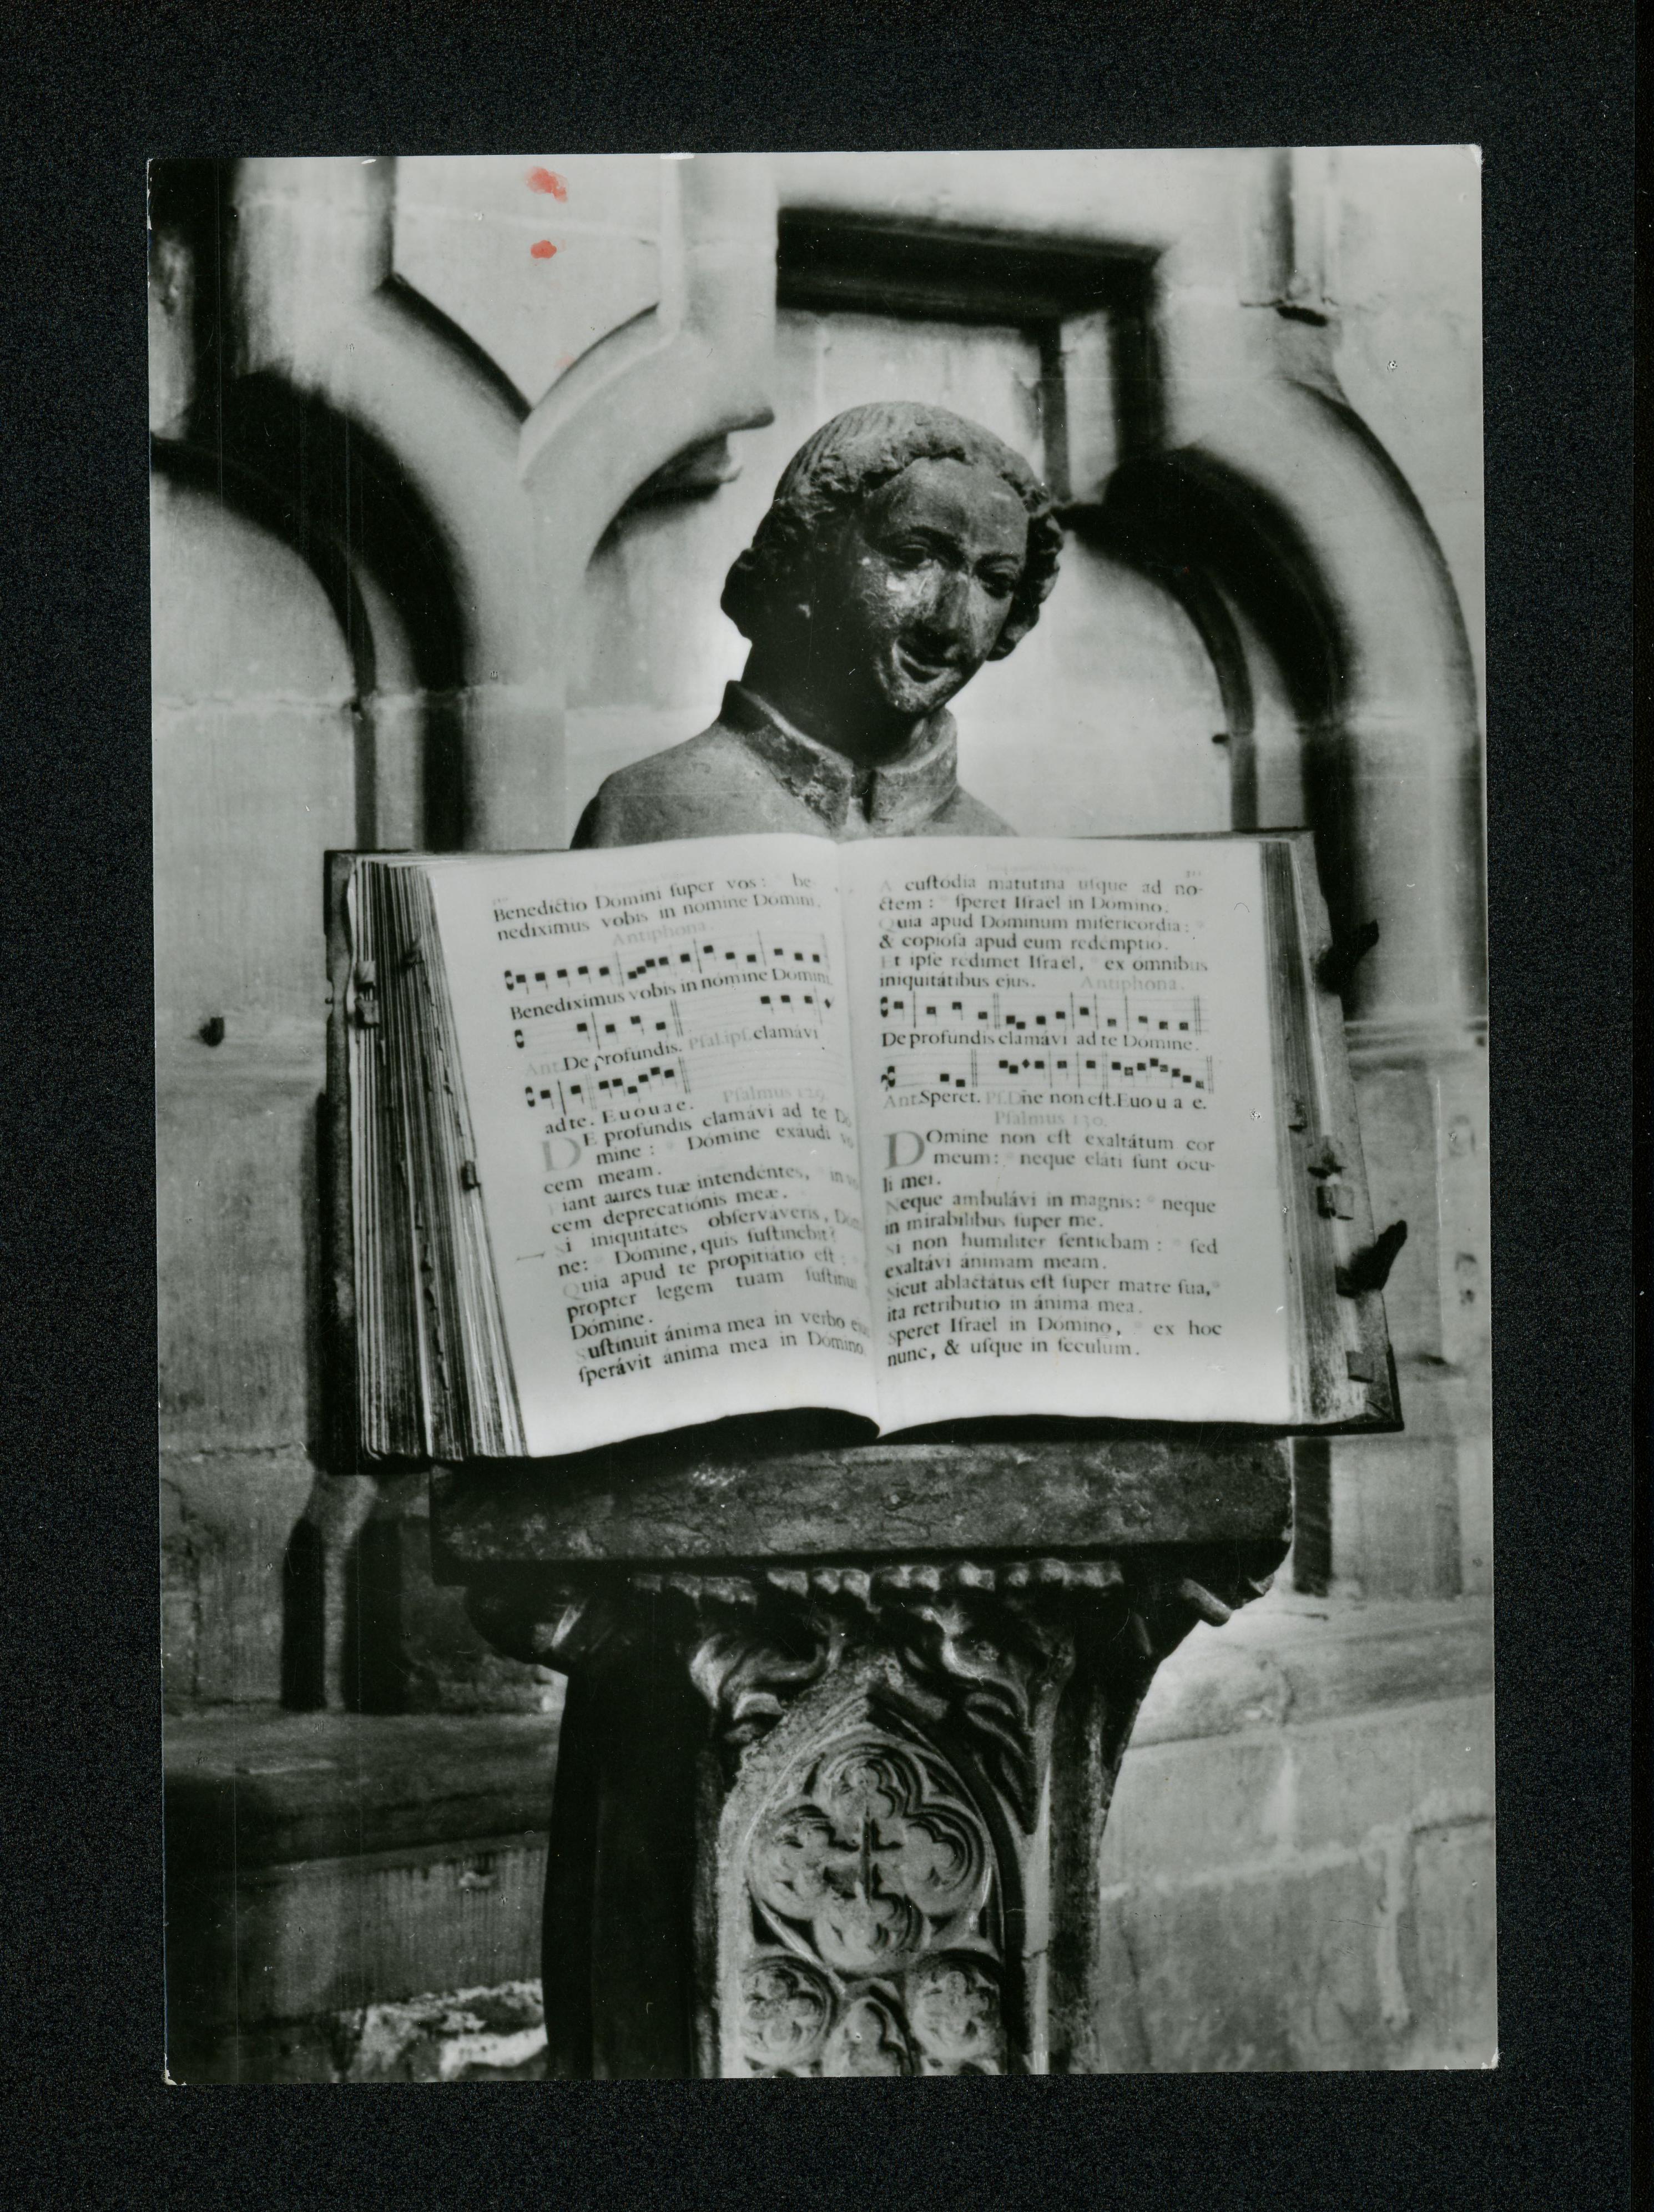 Benedictio Domini ſuper vos: be-
nediximus vobis in nomine Domini.
Antiphona.
Benediximus vobis in nomine Domini.
Ant. De profundis. Pſal. ipſ. clamávi
ad te. E u o u a e.
Pſalmus 129.
DE profundis clamávi ad te Do
mine: Domine exáudi vo
cem meam.
iant aures tuæ intendéntes, in vo
cem deprecatiónis meæ.
Si iniquitátes obſervaveris, Domi
ne: Dómine, quis ſuſtinebit?
Quia apud te propitiátio eſt:
propter legem tuam ſuſtinui
Dómine.
Suſtinuit ánima mea in verbo ejus
ſperávit ánima mea in Dómino.
A cuſtodia matutina uſque ad no-
ctem: ſperet Iſrael in Domino.
Quia apud Dominum miſericordia:
& copioſa apud eum redemptio.
Et ipſe redimet Iſrael, ex omnibus
iniquitátibus ejus. Antiphona.
De profundis clamávi ad te Domine.
Ant. Speret. Pſ. Dñe non eſt. E u o u a e.
Pſalmus 130.
DOmine non eſt exaltátum cor
meum: neque elati ſunt ocu-
li mei.
Neque ambulávi in magnis: * neque
in mirabilibus ſuper me.
Si non humiliter ſentiebam: ſed
exaltávi ánimam meam.
Sicut ablactátus eſt ſuper matre ſua, *
ita retributio in ánima mea.
Speret Iſrael in Domino, ex hoc
nunc, & uſque in ſeculum.